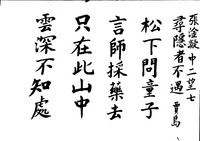 張 中二望 七
尋隱者不遇 賈島
松下問童子
言師採藥去
只在此山中
雲深不知處